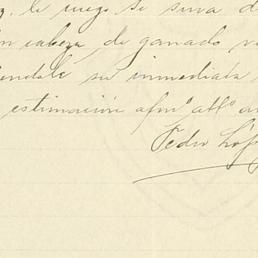 le ruego se sirva d
cabeza de ganado v
endole su inmediata
estimación afmo atto
Pedro Lóp